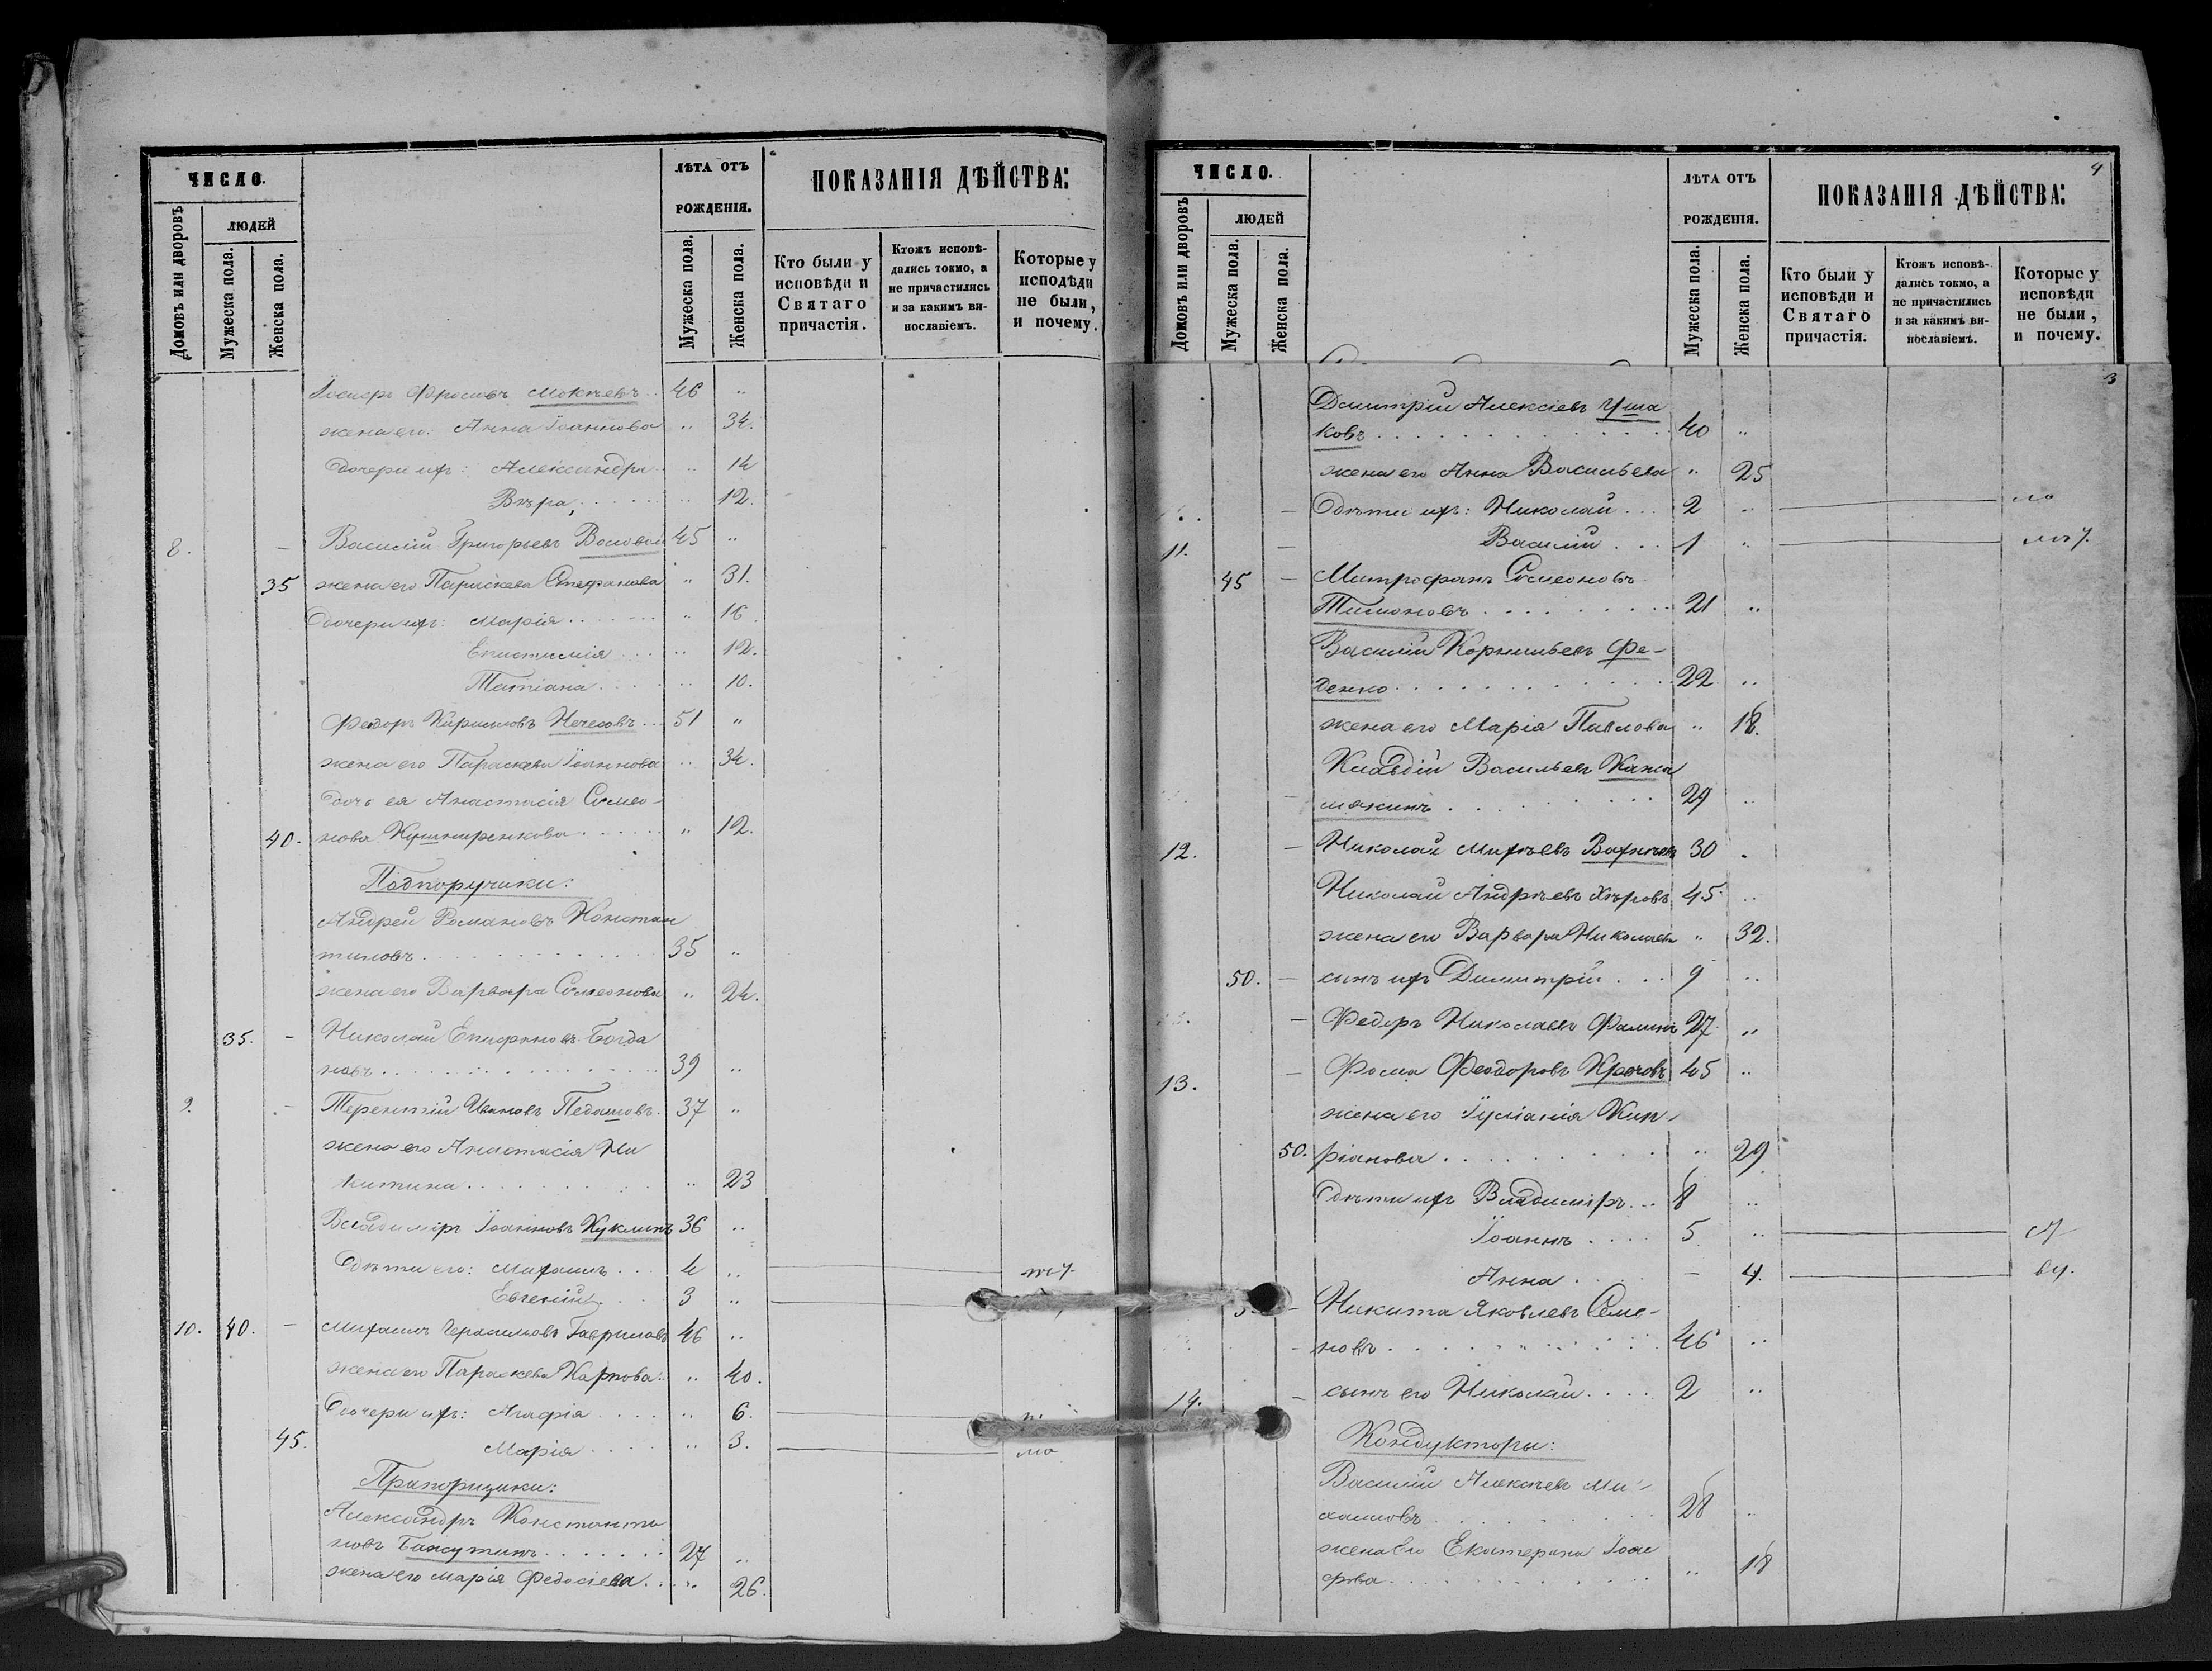 ЧИСЛО.
Домовъ или дворовъ
ЛЮДЕЙ
Мужеска пола.
Женска пола.
ЛѢТА ОТЪ
РОЖДЕНІЯ.
Мужеска пола.
Женска пола.
ПОКАЗАНІЯ ДѢЙСТВА:
Кто были у
исповѣди и
Святаго
причастія.
Ктожъ исповѣ-
дались токмо, а
не причастились
и за какимъ ви-
нославіемъ.
Которые у
исподѣди
не были,
и почему.
46 "
жена его: Анна Іоаннова " 34.
Дочери ихъ: Александра " 14
Вѣра, 12.
8. - Василій Григорьевъ 45 "
35 жена его Параскева Стефанова " 31.
Дочери ихъ: Марія " 16.
Епистимія " 12.
Татіана " 10.
Феодоръ Кириловъ 51 "
жена его Параскева Іоаннова " 34.
дочь ея Анастасія Симео-
40. нова Кушниренкова " 12.
Подпоручики:
Андрей Романовъ Констан
тиновъ 35 "
жена его Варвара Симеонова " 24.
35. - Николай Епифановъ Богда
новъ 39 "
9. - Терентій Ивановъ Педашовъ 37 "
жена его Анастасія Ни
китина " 23
Владиміръ Іоанновъ Куклинъ 36 "
Дѣти его: Михаилъ 4 "
Евгеній 3 "
10. 40. - Михаилъ Герасимовъ Гавриловъ 46 "
жена его Параскева Карпова " 40.
Дочери ихъ: Агафія " 6.
45. Марія " 3. ма
Прапорщики:
Александръ Константи
новъ 27 "
жена его Марія Федосіева " 26.
ЧИСЛО.
Домовъ или дворовъ
ЛЮДЕЙ
Мужеска пола.
Женска пола.
ЛѢТА ОТЪ
РОЖДЕНІЯ.
Мужеска пола.
Женска пола.
4
ПОКАЗАНІЯ ДѢЙСТВА:
Кто были у
исповѣди и
Святаго
причастія.
Ктожъ исповѣ-
дались токмо, а
не причастились
и за какимъ ви-
нославіемъ.
Которые у
исповѣди
не были,
и почему.
3
Димитрій Алексіевъ Уша
ковъ 40 "
жена его Анна Васильева " 25
Дѣти ихъ: Николай 2 "
11. - Василій 1 "
45 - Митрофанъ Симеоновъ
Тимоновъ 21 "
Василій Корнильевъ Фе-
денко 22 "
жена его Марія Павлова " 18.
Клавдій Васильевъ
29 "
12. - Николай 30 "
Николай Андреевъ 45 "
жена его Варвара Николаева " 32.
50. - сынъ ихъ Димитрій 9 "
- Федоръ Николаевъ 27 "
13. - Фома Феодоровъ 45 "
жена его Іуліанія Кип-
50. ріанова " 29
Дѣти ихъ Владиміръ 8 "
Іоаннъ 5 "
Анна - 4.
- Никита Яковлевъ Семе-
новъ 46 "
14. - сынъ его Николай 2 "
Кондукторы:
Василій Алексѣевъ Ми-
хаиловъ 28 "
жена его Екатерина
" 18